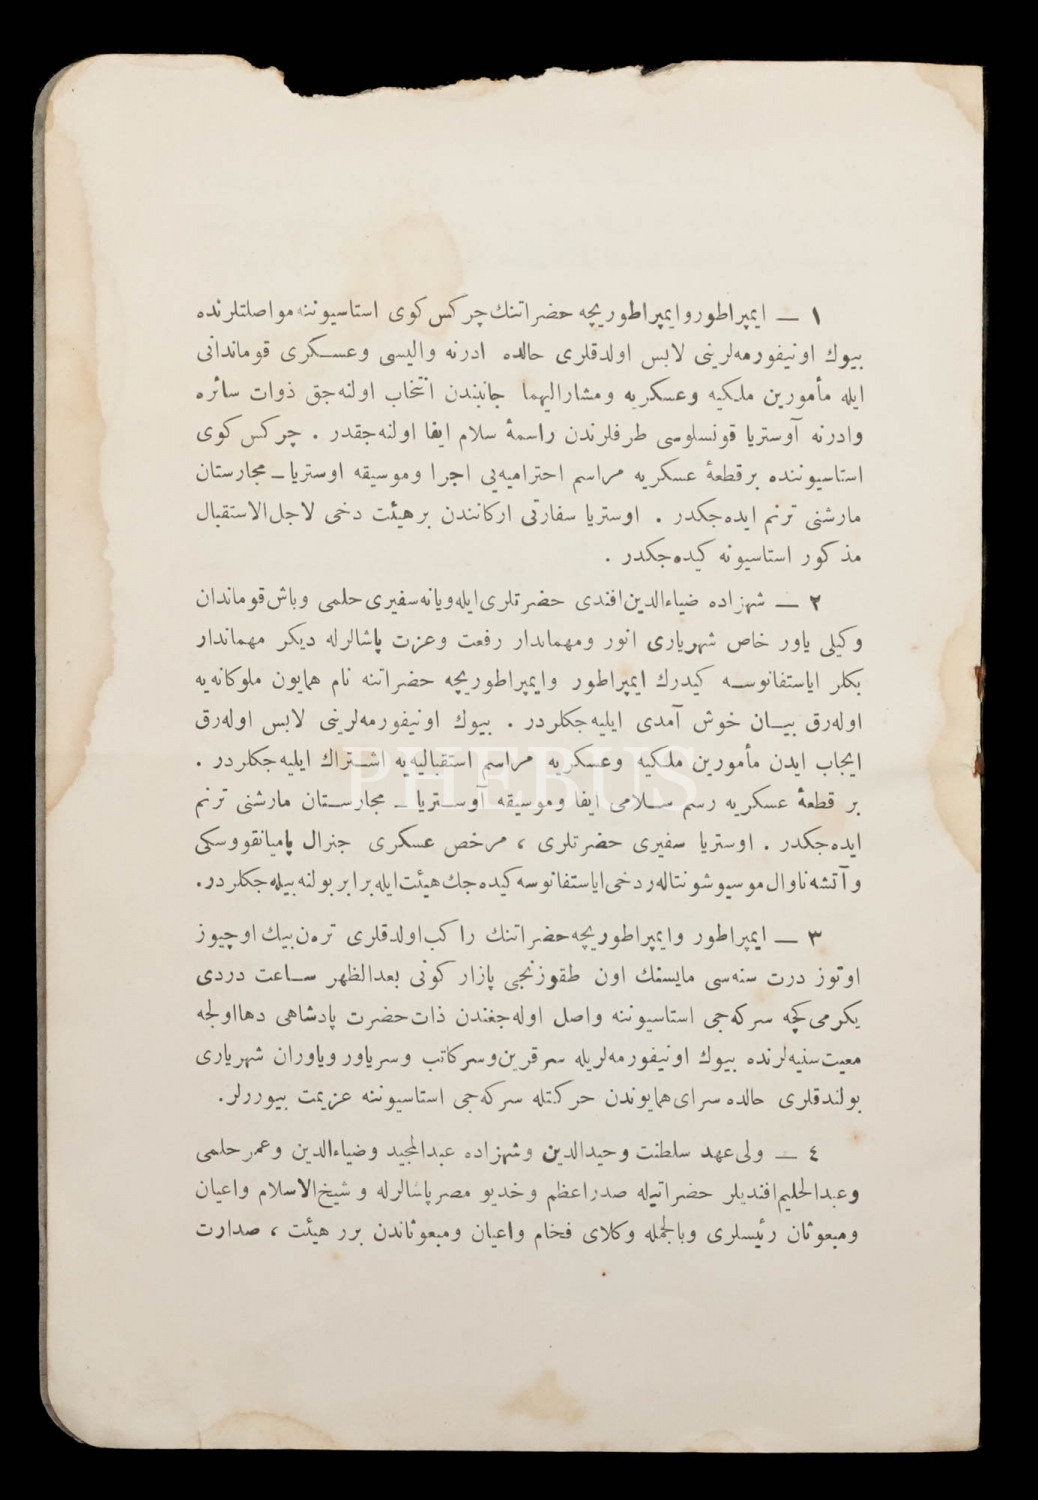 ١ — ایمپراطور و ایمپراطوریچه حضراتنك چركس كوی استاسیوننه مواصلتلرنده
بیوك اونیفورمه‌لرینی لابس اولدقلری حالده ادرنه والیسی وعسكری قوماندانی
ایله مأمورین ملكیه وعسكریه ومشارالیهما جانبندن انتخاب اولنه‌جق ذوات سائره
وادرنه آوستریا قونسلوسی طرفلرندن راسمۀ سلام ایفا اولنه‌جقدر . چركس كوی
استاسیوننده بر قطعۀ عسكریه مراسم احترامیه‌یی اجرا وموسیقه اوستریا — مجارستان
مارشنی ترنم ایده‌جكدر . اوستریا سفارتی اركانندن بر هیئت دخی لاجل‌الاستقبال
مذكور استاسیونه كیده‌جكدر .
٢ — شهزاده ضیاءالدین افندی حضرتلری ایله ویانه سفیری حلمی وباش قوماندان
وكیلی یاور خاص شهریاری انور ومهماندار رفعت وعزت پاشالرله دیكر مهماندار
بكلر ایاستفانوسه كیدرك ایمپراطور وایمپراطوریچه حضراتنه نام همایون ملوكانه‌یه
اوله‌رق بیان خوش آمدی ایلیه‌جكلردر . بیوك اونیفورمه‌لرینی لابس اوله‌رق
ایجاب ایدن مأمورین ملكیه وعسكریه مراسم استقبالیه‌یه اشتراك ایلیه‌جكلردر .
بر قطعۀ عسكریه رسم سلامی ایفا وموسیقه آوستریا — مجارستان مارشنی ترنم
ایده‌جكدر . اوستریا سفیری حضرتلری ، مرخص عسكری جنرال پامیانقووسكی
وآتشه ناوال موسیو شونتاله‌ر دخی ایاستفانوسه كیده‌جك هیئت ایله برابر بولنه‌بیله‌جكلردر .
٣ — ایمپراطور وایمپراطوریچه حضراتنك راكب اولدقلری ترەن بیك اوچیوز
اوتوز درت سنه‌سی مایسنك اون طقوزنجی پازار كونی بعدالظهر ساعت دردی
یكرمی كچه سركه‌جی استاسیوننه واصل اوله‌جغندن ذات حضرت پادشاهی دها اولجه
معیت سنیه‌لرنده بیوك اونیفورمه‌لریله سرقرین وسركاتب وسریاور ویاوران شهریاری
بولندقلری حالده سرای همایوندن حركتله سركه‌جی استاسیوننه عزیمت بیوررلر .
٤ — ولی عهد سلطنت وحیدالدین وشهزاده عبدالمجید وضیاءالدین وعمر حلمی
وعبدالحلیم افندیلر حضراتیله صدراعظم وخدیو مصر پاشالرله و شیخ‌الاسلام واعیان
ومبعوثان رئیسلری وبالجمله وكلای فخام واعیان ومبعوثاندن برر هیئت ، صدارت
PHEBUS